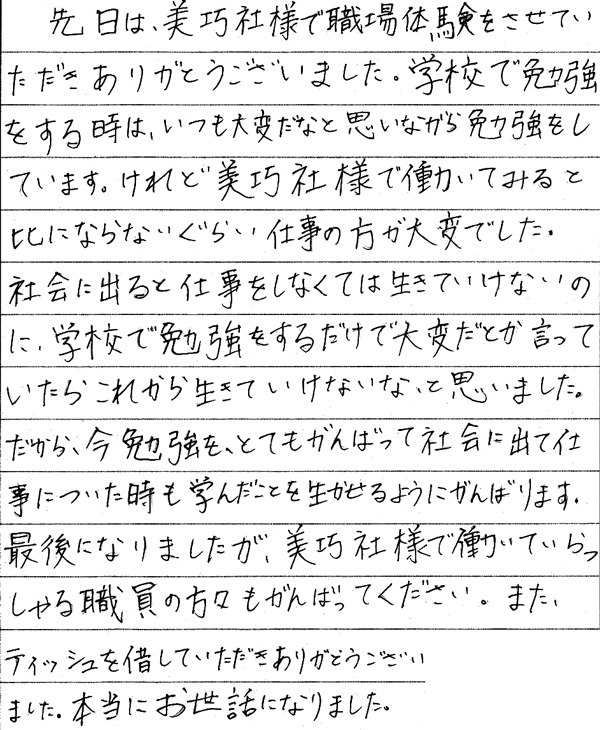 先日は、美巧社様で職場体験をさせてい
ただきありがとうございました。学校で勉強
をする時は、いつも大変だなと思いながら勉強をし
ています。けれど美巧社様で働いてみると
比にならないぐらい仕事の方が大変でした。
社会に出ると仕事をしなくては生きていけないの
に、学校で勉強をするだけで大変だとか言って
いたらこれから生きていけないな、と思いました。
だから、今勉強を、とてもがんばって社会に出て仕
事についた時も学んだことを生かせるようにがんばります。
最後になりましたが、美巧社様で働いていらっ
しゃる職員の方々もがんばってください。また、
ティッシュを借していただきありがとうござい
ました。本当にお世話になりました。